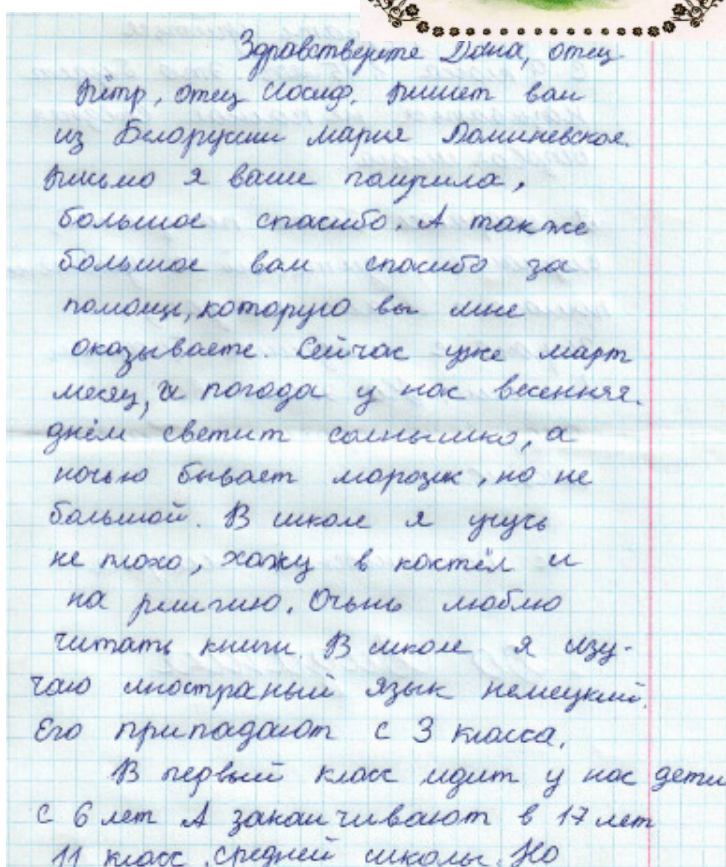 Здравствуйте Дана, отец
Пётр, отец Иосиф. Пишет вам
из Белоруссии Мария Доминевская.
Письмо я ваше получила,
большое спасибо. А также
большое вам спасибо за
помощь, которую вы мне
оказываете. Сейчас уже март
месяц, и погода у нас весенняя.
днём светит солнышко, а
ночью бывает морозик, но не
большой. В школе я учусь
не плохо, хожу в костёл и
на религию. Очень люблю
читать книги. В школе я изу-
чаю иностраный язык немецкий.
Его припадают с 3 класса.
В первый класс идит у нас дети
с 6 лет А заканчивают в 17 лет
11 класс средней школы. Но